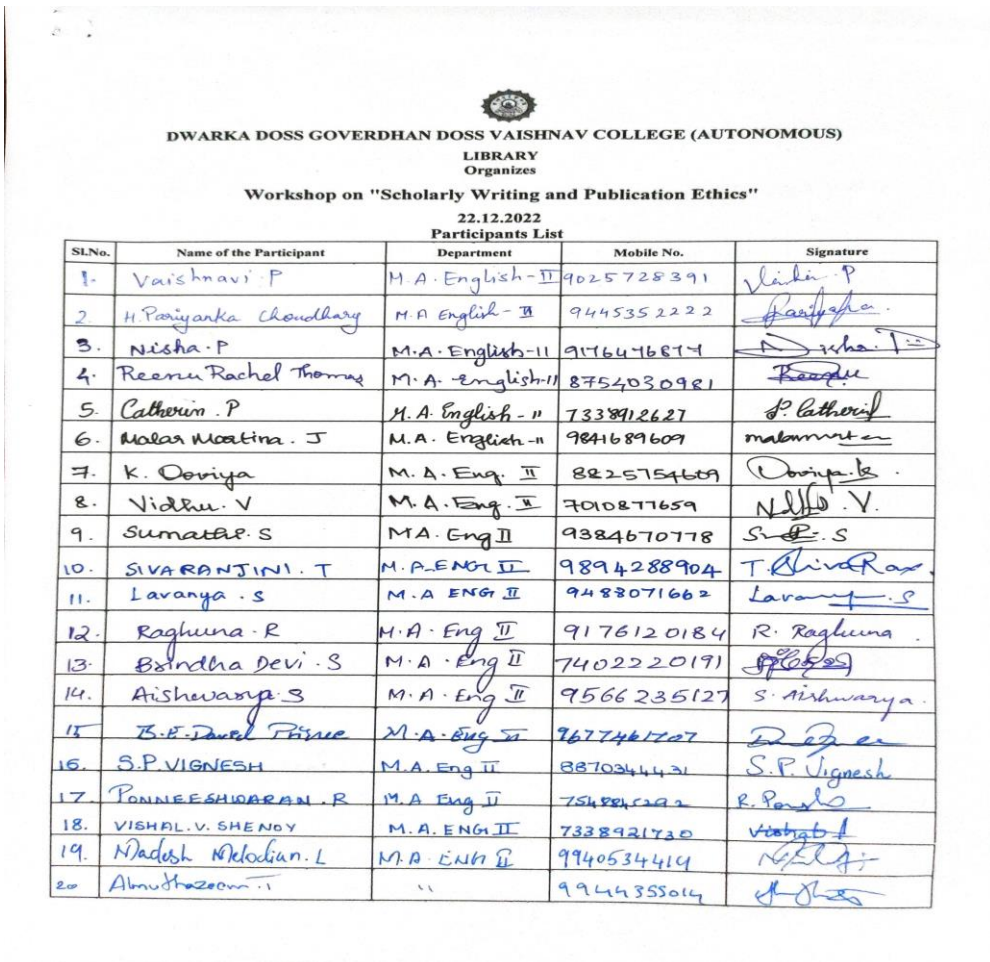 DWARKA DOSS GOVERDHAN DOSS VAISHNAV COLLEGE (AUTONOMOUS)
LIBRARY
Organizes
Workshop on "Scholarly Writing and Publication Ethics"
22.12.2022
Participants List
Sl.No. Name of the Participant Department Mobile No. Signature
1. Vaishnavi . P M.A. English - II 9025728391
2. H. Pariyanka Choudhary M.A English - II 9445352222
3. Nisha . P M.A. English-11
4. Reenu Rachel Thomas M.A. English-11 8754030981
5. Catherin . P M.A. English - 11 7338912627 P. Catherin
6. Malar Martina . J M.A. English -11 9841689609
7. K. Ooviya M.A. Eng. II 8825754609 Ooviya.k.
8. Vidhu. V M.A. Eng. II 7010877659
9. Sumathi. S MA. Eng II 9384670778
10. SIVARANJINI. T M.A-ENG II 9894288904
11. Lavanya . S M.A ENG II 9488071662
12. Raghuna . R M.A. Eng II 9176120184 R. Raghuna
13. Brindha Devi . S M.A. Eng II 7402220191
14. Aishwarya. S M.A. Eng II 9566235127 S. Aishwarya.
15 Prince M.A. Eng II
16. S.P. VIGNESH M.A. Eng II 8870344431 S.P. Vignesh
17. PONNEESHWARAN . R M.A Eng II
18. VISHAL. V. SHENOY M.A. ENG II 7338921730
19. Madesh Melodian. L M.A. ENG II 9940534414
20 " 9944355014